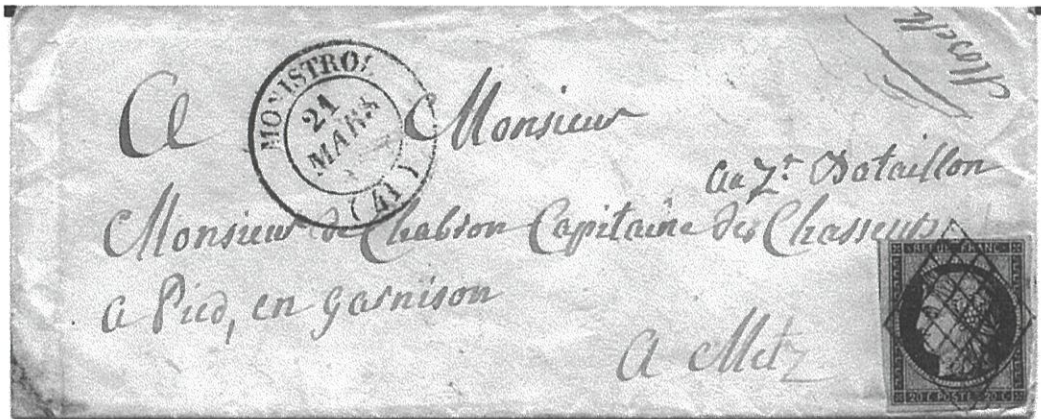 Moselle
MONISTROL
21
MARS
(41)
A Monsieur
au 7e Bataillon
Monsieur de Chabron Capitaine des Chasseurs
a Pied, en garnison
A Metz
REPUB. FRANC.
20 C POSTES 20 C